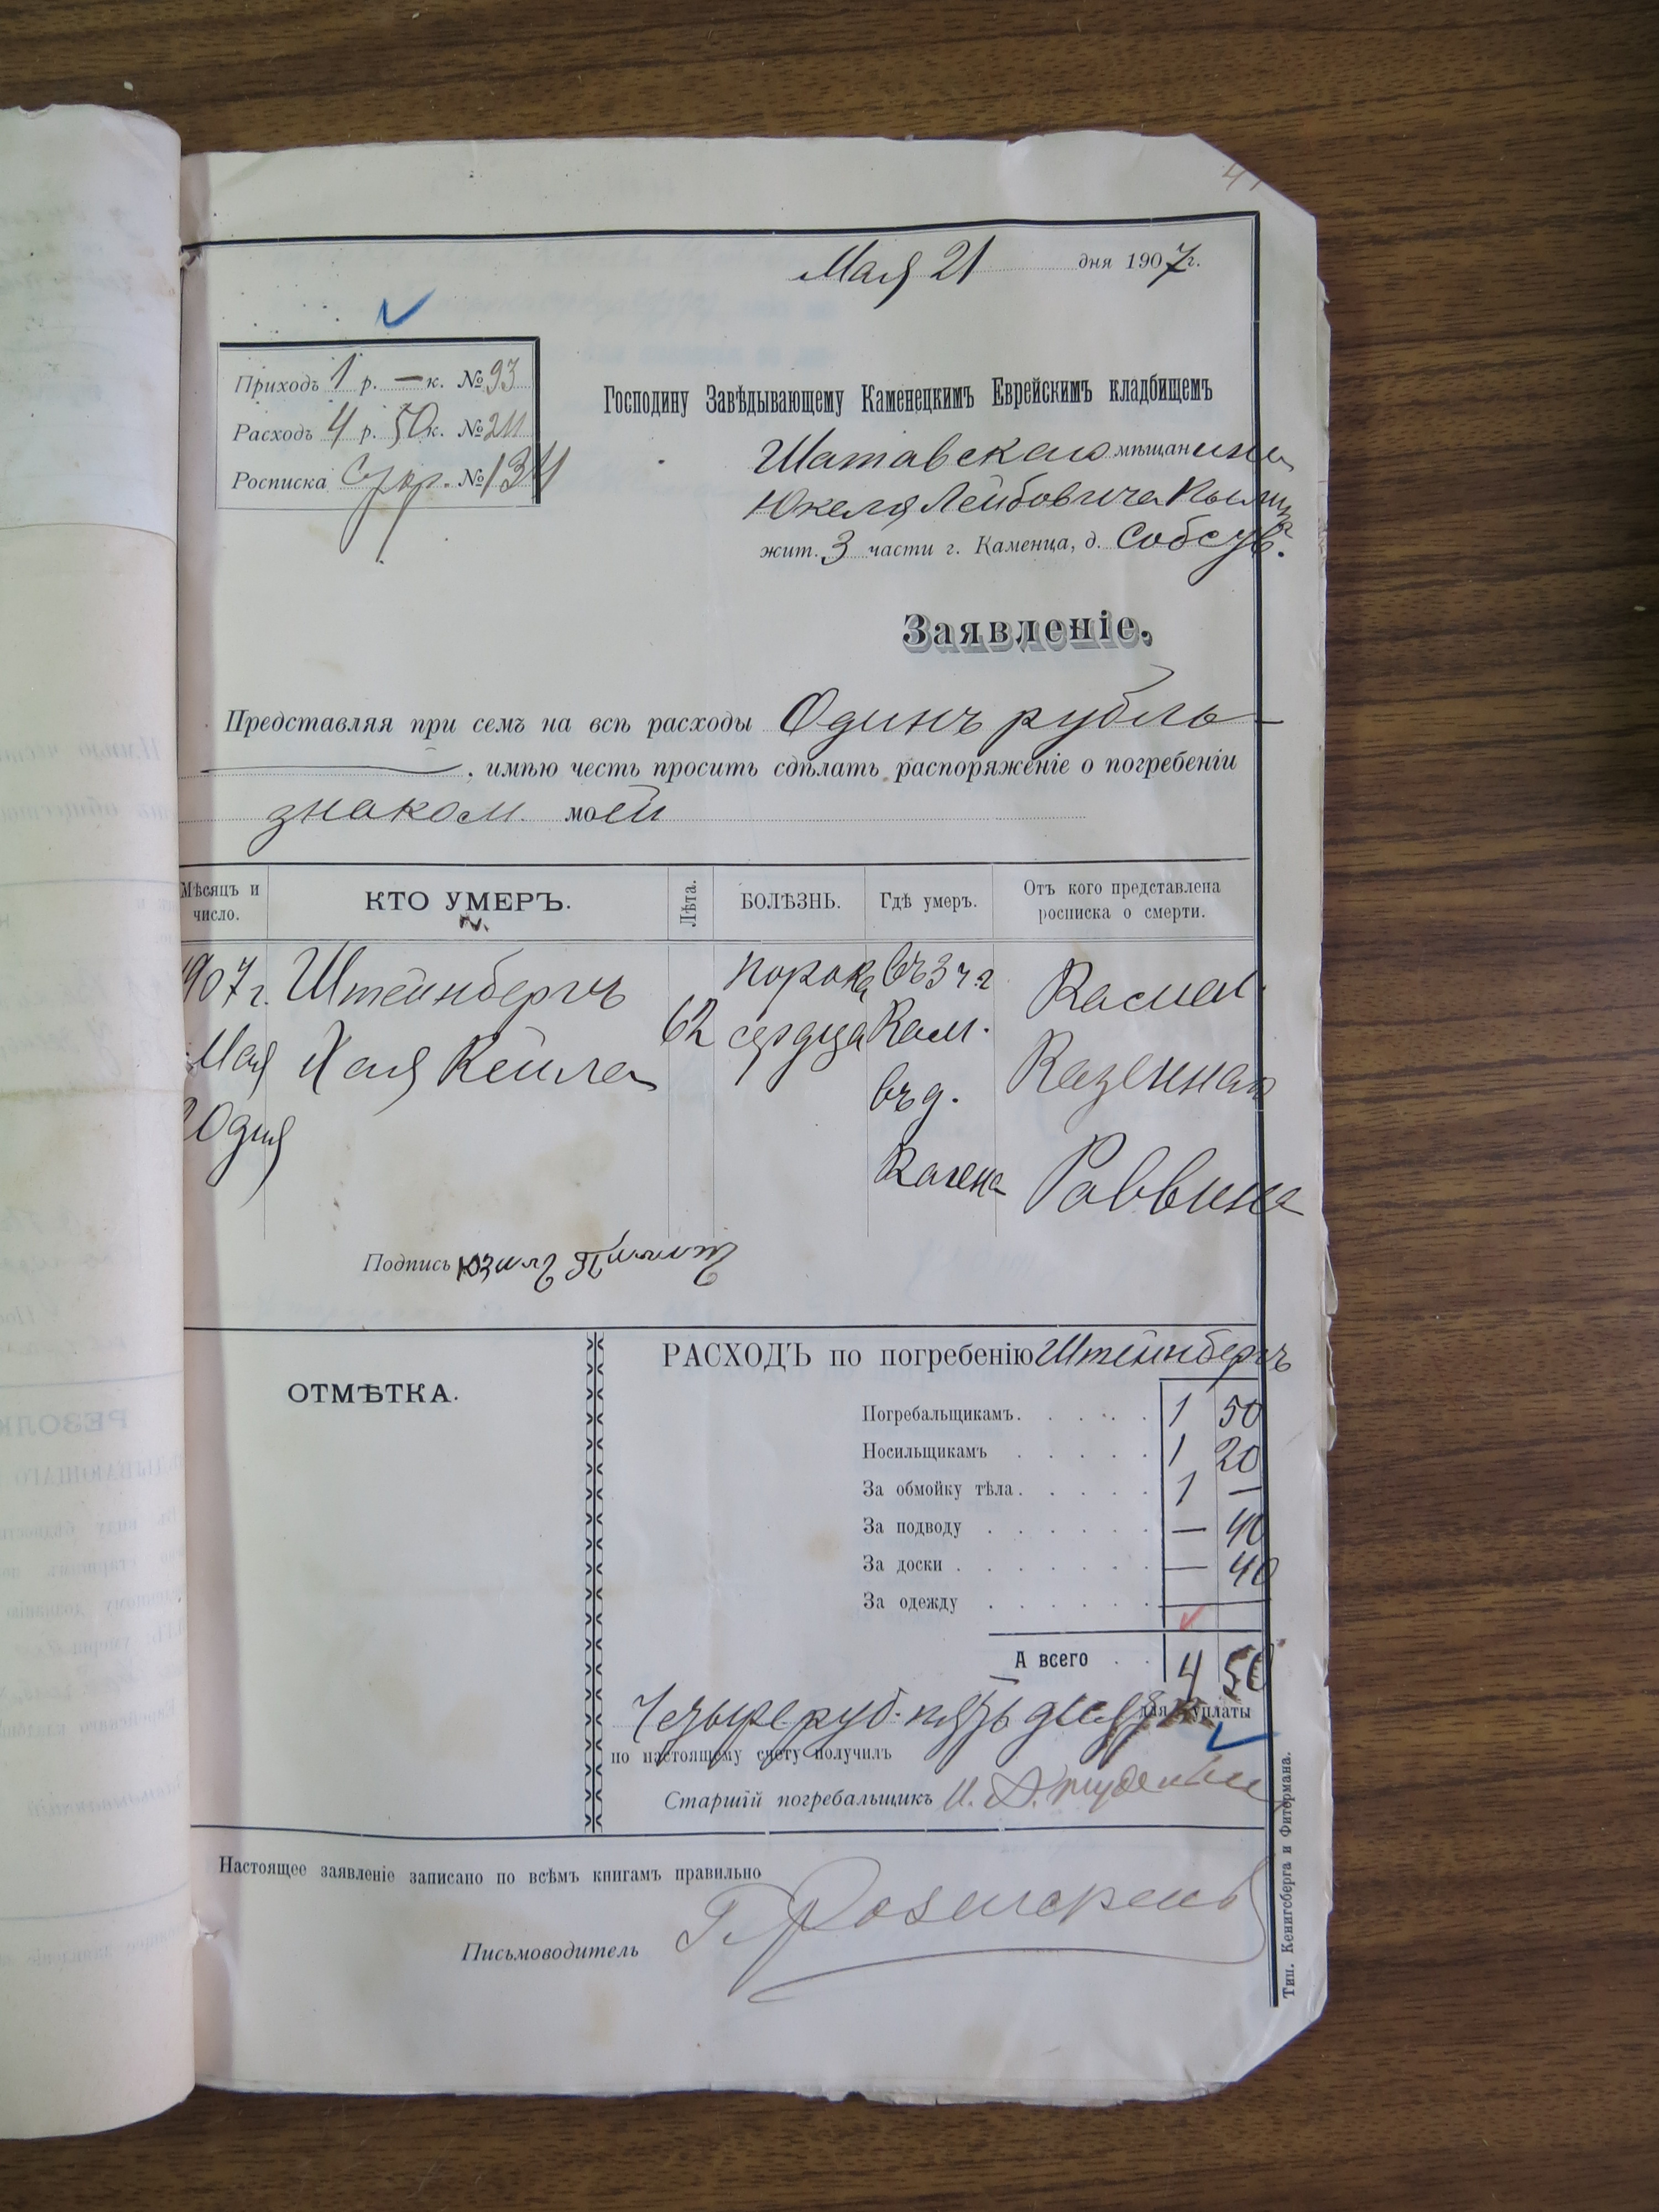 Мая 21 дня 1907 г.
Приходъ 1 р. — к. № 93
Расходъ 4 р. 50 к. № 211
Росписка № 134
Господину Завѣдывающему Каменецкимъ Еврейскимъ кладбищемъ
Шатавского мѣщанина
Юкеля Лейбовича
жит. 3 части г. Каменца, д. Собств.
Заявленіе.
Представляя при семъ на всѣ расходы Одинъ рубль —
, имѣю честь просить сдѣлать распоряженіе о погребеніи
знаком. моей
Мѣсяцъ и число. КТО УМЕРЪ. Лѣта. БОЛѢЗНЬ. Гдѣ умеръ. Отъ кого представлена росписка о смерти.
1907 г. Штейнбергъ порока въ 3 ч г
Мая Хая Кейла 62 сердца Кам. Казеннаго
20 дня въ д. Раввина
Кагена
Подпись
РАСХОДЪ по погребенію Штейнбергъ
ОТМѢТКА.
Погребальщикамъ. 1 50
Носильщикамъ 1 20
За обмойку тѣла. 1 —
За подводу — 40
За доски — 40
За одежду —
А всего 4 50
Четыре руб. пять для уплаты
по настоящему счету получилъ
Старшій погребальщикъ
Настоящее заявленіе записано по всѣмъ книгамъ правильно
Письмоводитель
Тип. Кенигсберга и Фитермана.